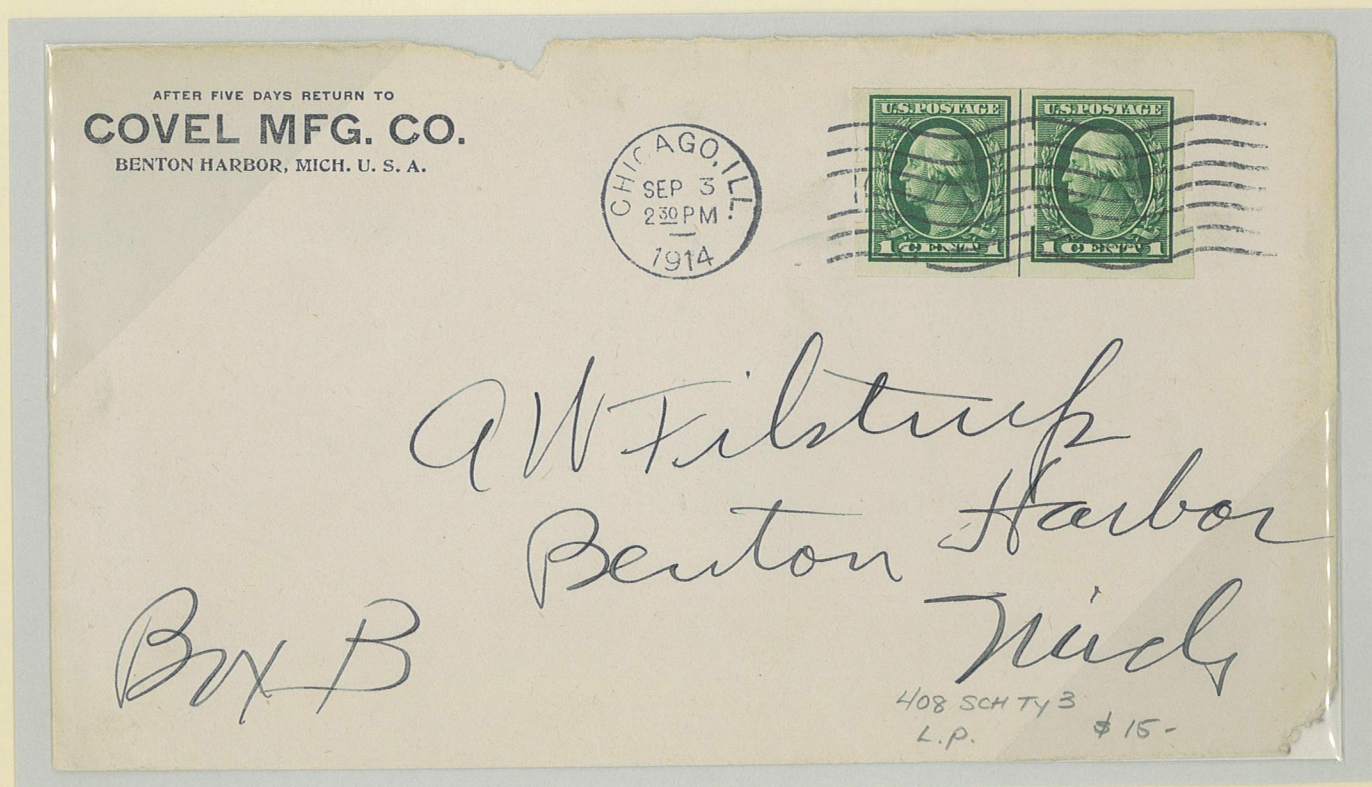 AFTER FIVE DAYS RETURN TO
COVEL MFG. CO.
BENTON HARBOR, MICH. U. S. A.
CHICAGO, ILL.
SEP 3
2 30 PM
1914
U.S. POSTAGE
1 CENT 1
U.S. POSTAGE
1 CENT 1
A W Filstrup
Benton Harbor
Mich
Box B
408 SCH TY 3
L.P.
$ 15-